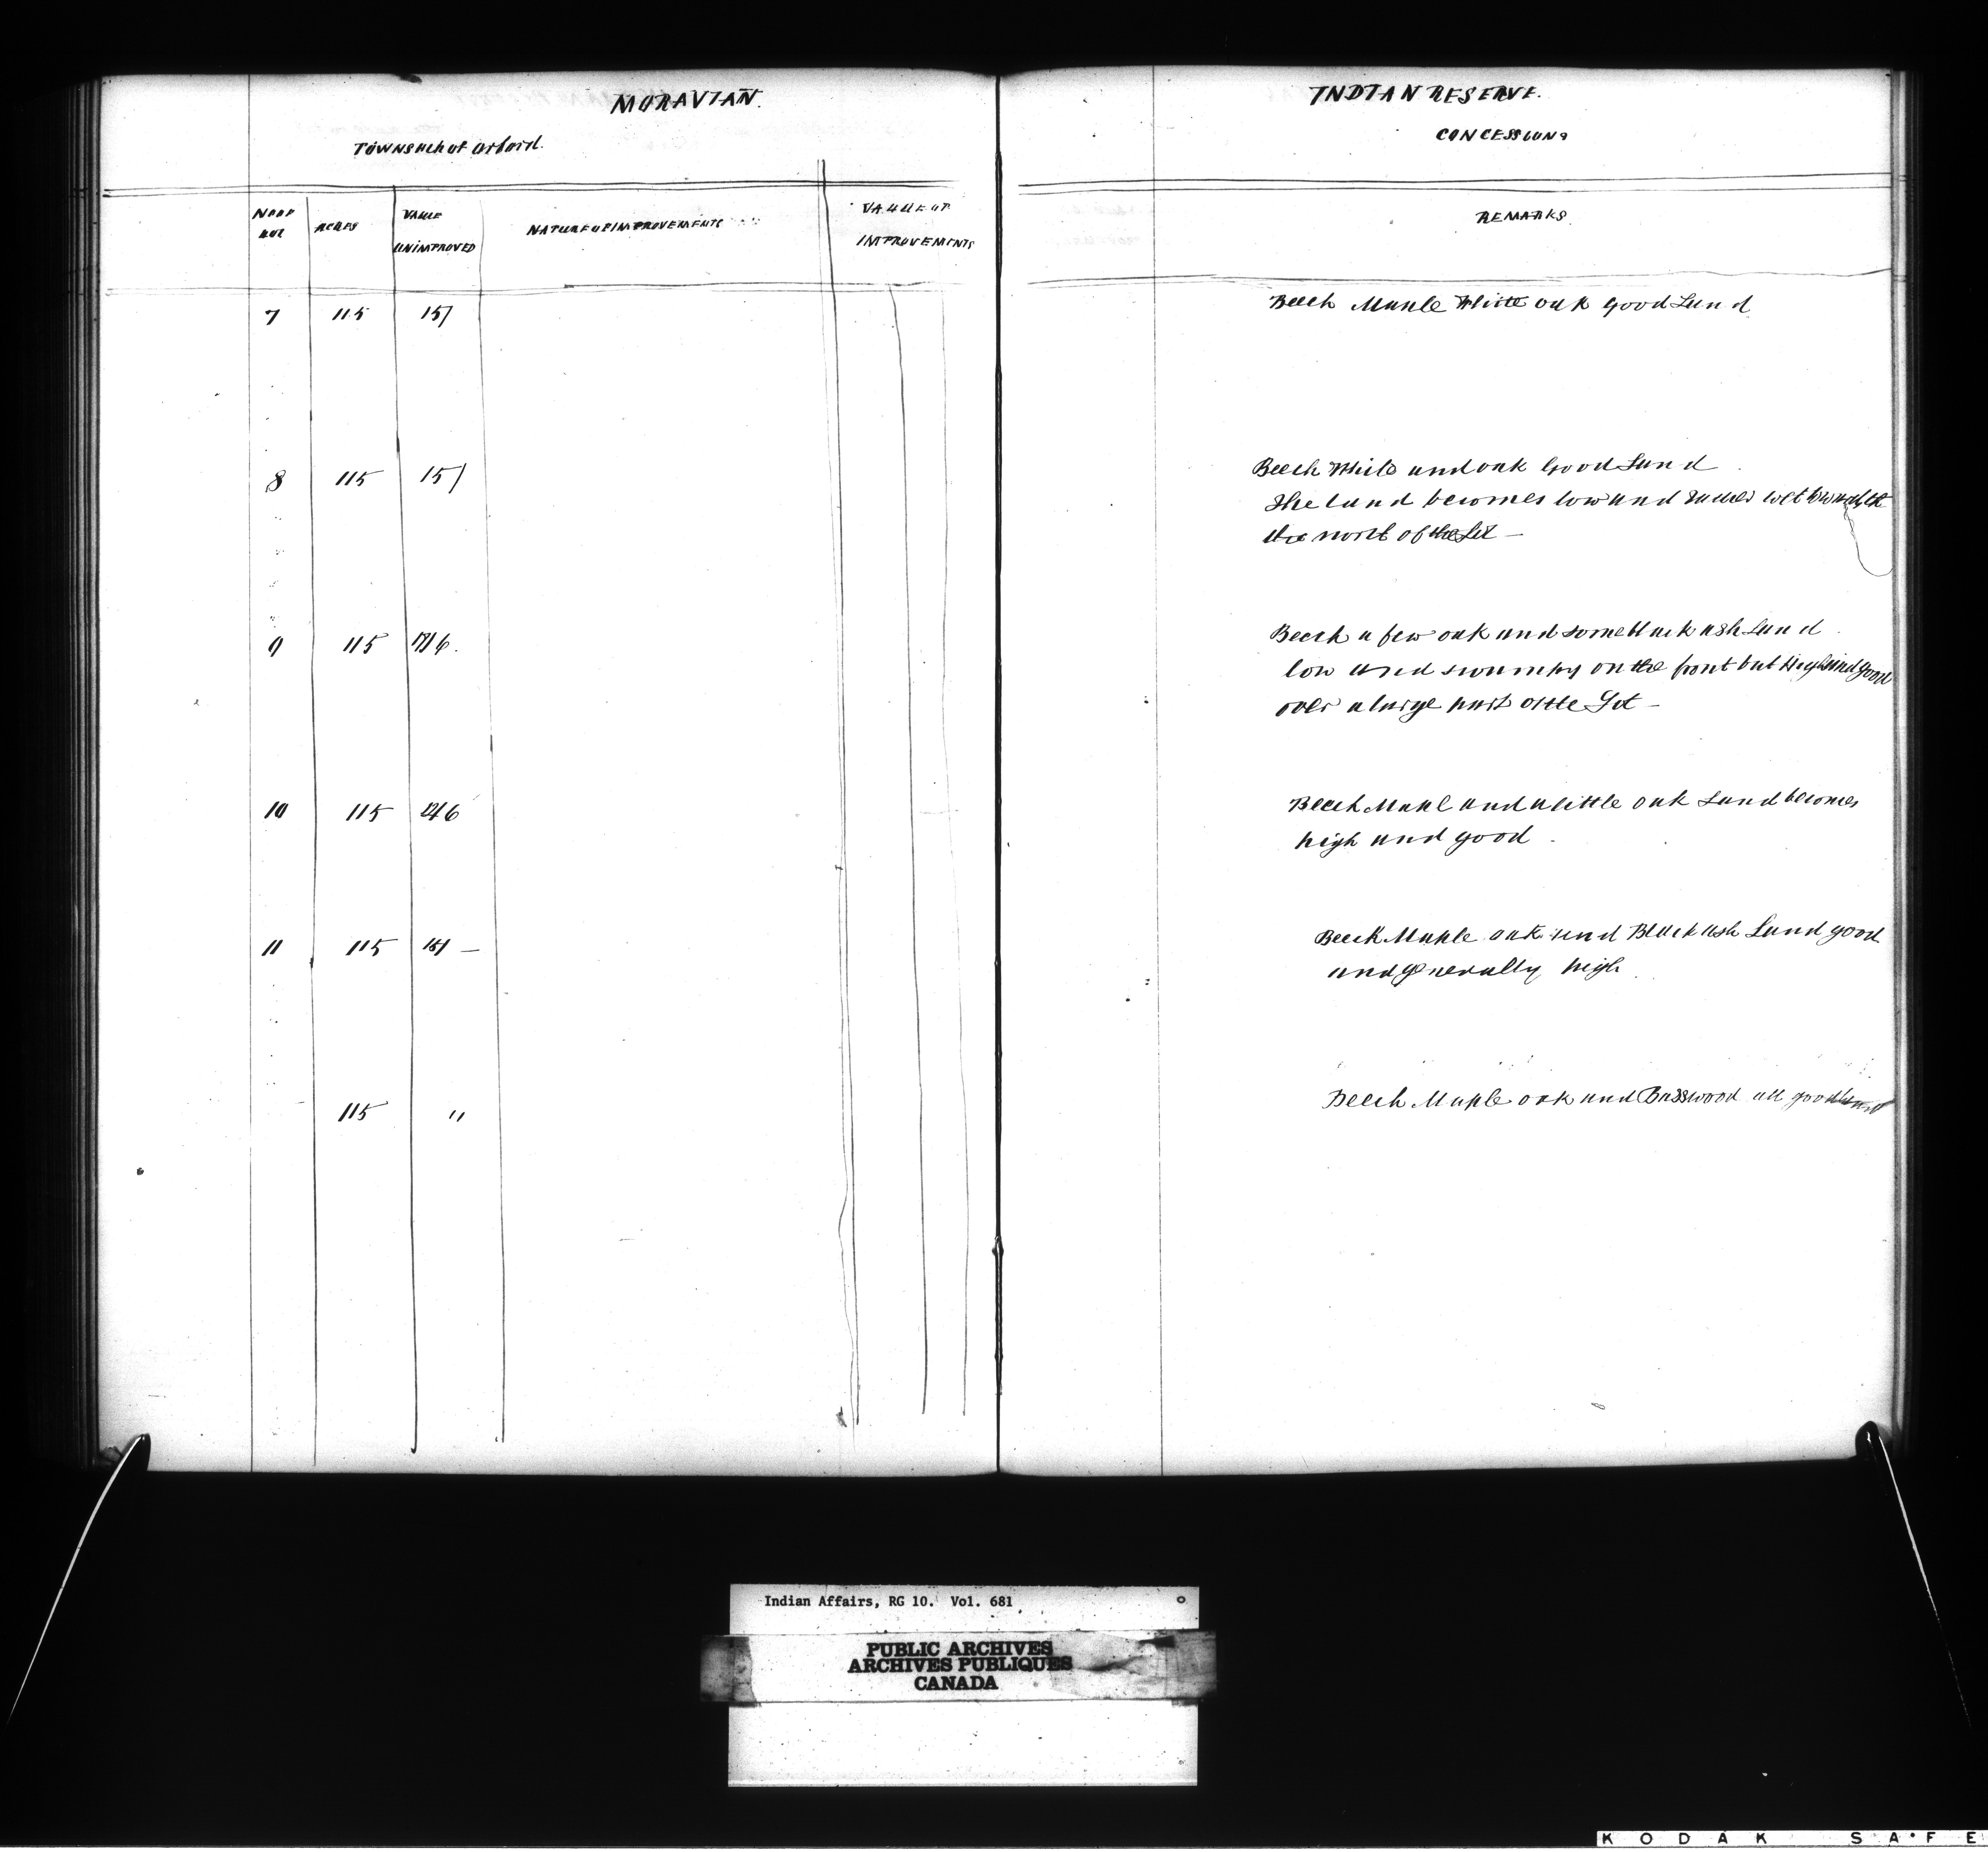 MORAVIAN.
INDIAN RESERVE.
Township of Orford.
CONCESSION 9
NO OF LOT
ACRES
VALUE UNIMPROVED
NATURE OF IMPROVEMENTS
VALUE OF IMPROVEMENTS
REMARKS
7 115 15/ Beech Maple White oak good Land
8 115 15/ Beech White and oak Good Land
The land becomes low and wet towards the
the north of the Lot —
9 115 Beech a few oak and some black ash Land
low and swampy on the front but high and good
over a large part of the Lot —
10 115 Beech Maple and a little oak Land becomes
high and good.
11 115 15/ — Beech Maple oak and Black ash Land good
and generally high
115 " Beech Maple oak and Basswood all good land
Indian Affairs, RG 10. Vol. 681
PUBLIC ARCHIVES
ARCHIVES PUBLIQUES
CANADA
KODAK SAFE